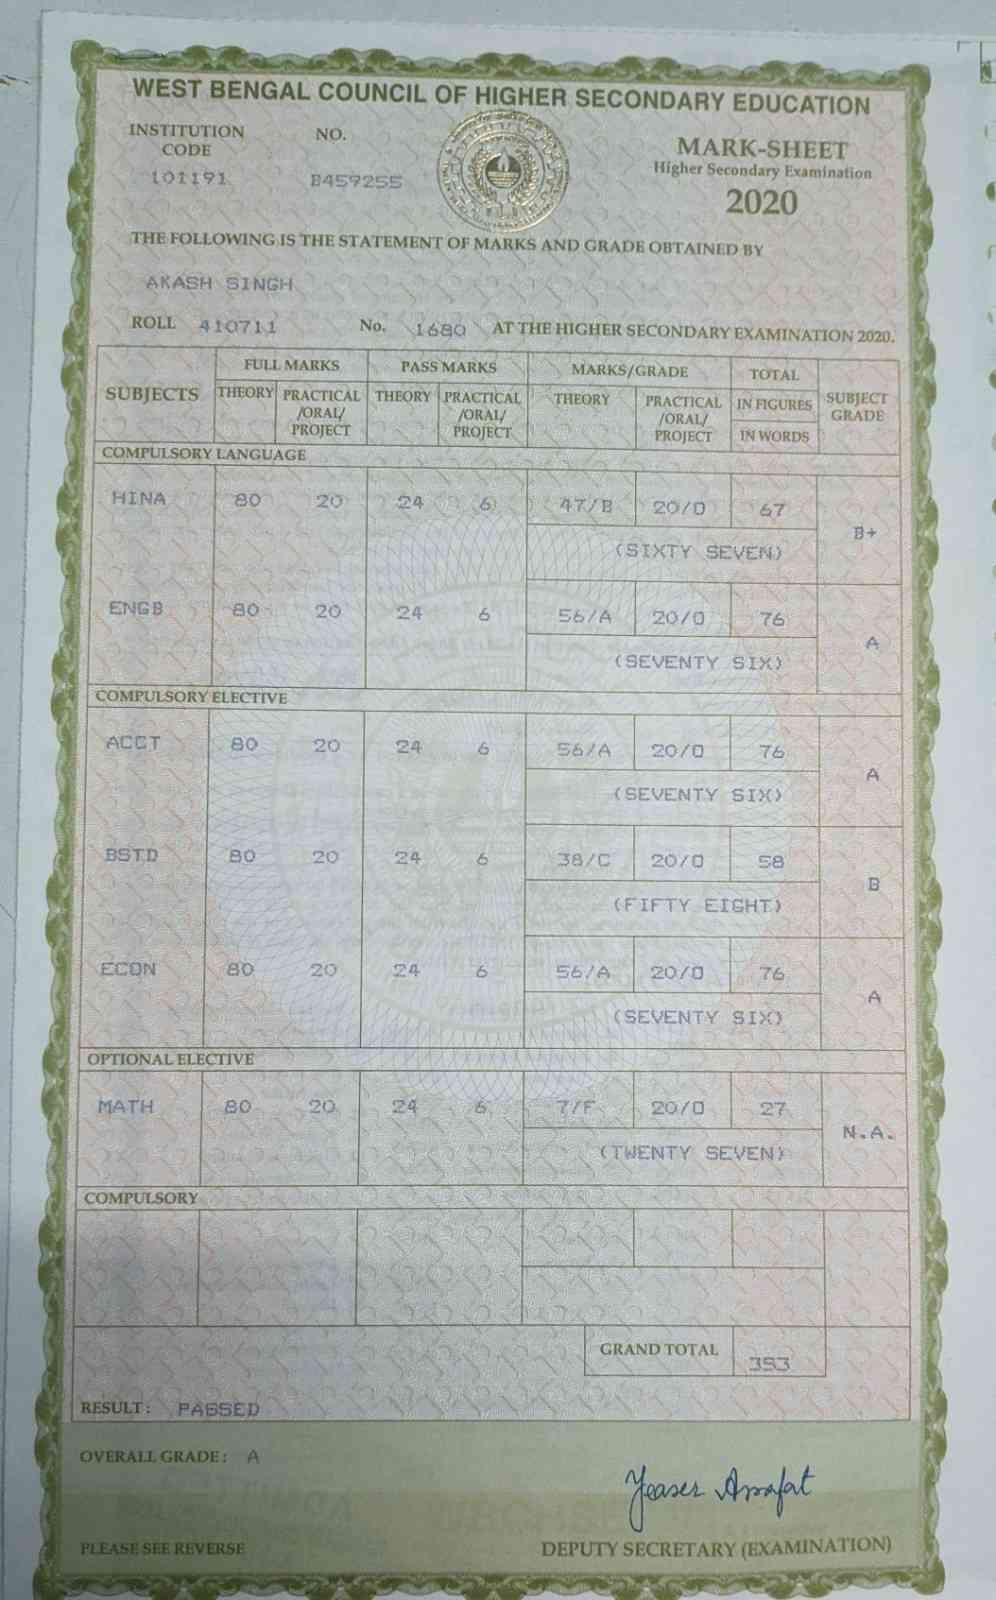 WEST BENGAL COUNCIL OF HIGHER SECONDARY EDUCATION
INSTITUTION CODE NO.
101191 B459255
MARK-SHEET
Higher Secondary Examination
2020
THE FOLLOWING IS THE STATEMENT OF MARKS AND GRADE OBTAINED BY
AKASH SINGH
ROLL 410711 No. 1680 AT THE HIGHER SECONDARY EXAMINATION 2020.
SUBJECTS FULL MARKS PASS MARKS MARKS/GRADE TOTAL SUBJECT GRADE
THEORY PRACTICAL /ORAL/ PROJECT THEORY PRACTICAL /ORAL/ PROJECT THEORY PRACTICAL /ORAL/ PROJECT IN FIGURES
IN WORDS
COMPULSORY LANGUAGE
HINA 80 20 24 6 47/B 20/O 67 B+
(SIXTY SEVEN)
ENGB 80 20 24 6 56/A 20/O 76 A
(SEVENTY SIX)
COMPULSORY ELECTIVE
ACCT 80 20 24 6 56/A 20/O 76 A
(SEVENTY SIX)
BSTD 80 20 24 6 38/C 20/O 58 B
(FIFTY EIGHT)
ECON 80 20 24 6 56/A 20/O 76 A
(SEVENTY SIX)
OPTIONAL ELECTIVE
MATH 80 20 24 6 7/F 20/O 27 N.A.
(TWENTY SEVEN)
COMPULSORY
GRAND TOTAL 353
RESULT: PASSED
OVERALL GRADE: A
Yeaser Arrafat
PLEASE SEE REVERSE DEPUTY SECRETARY (EXAMINATION)